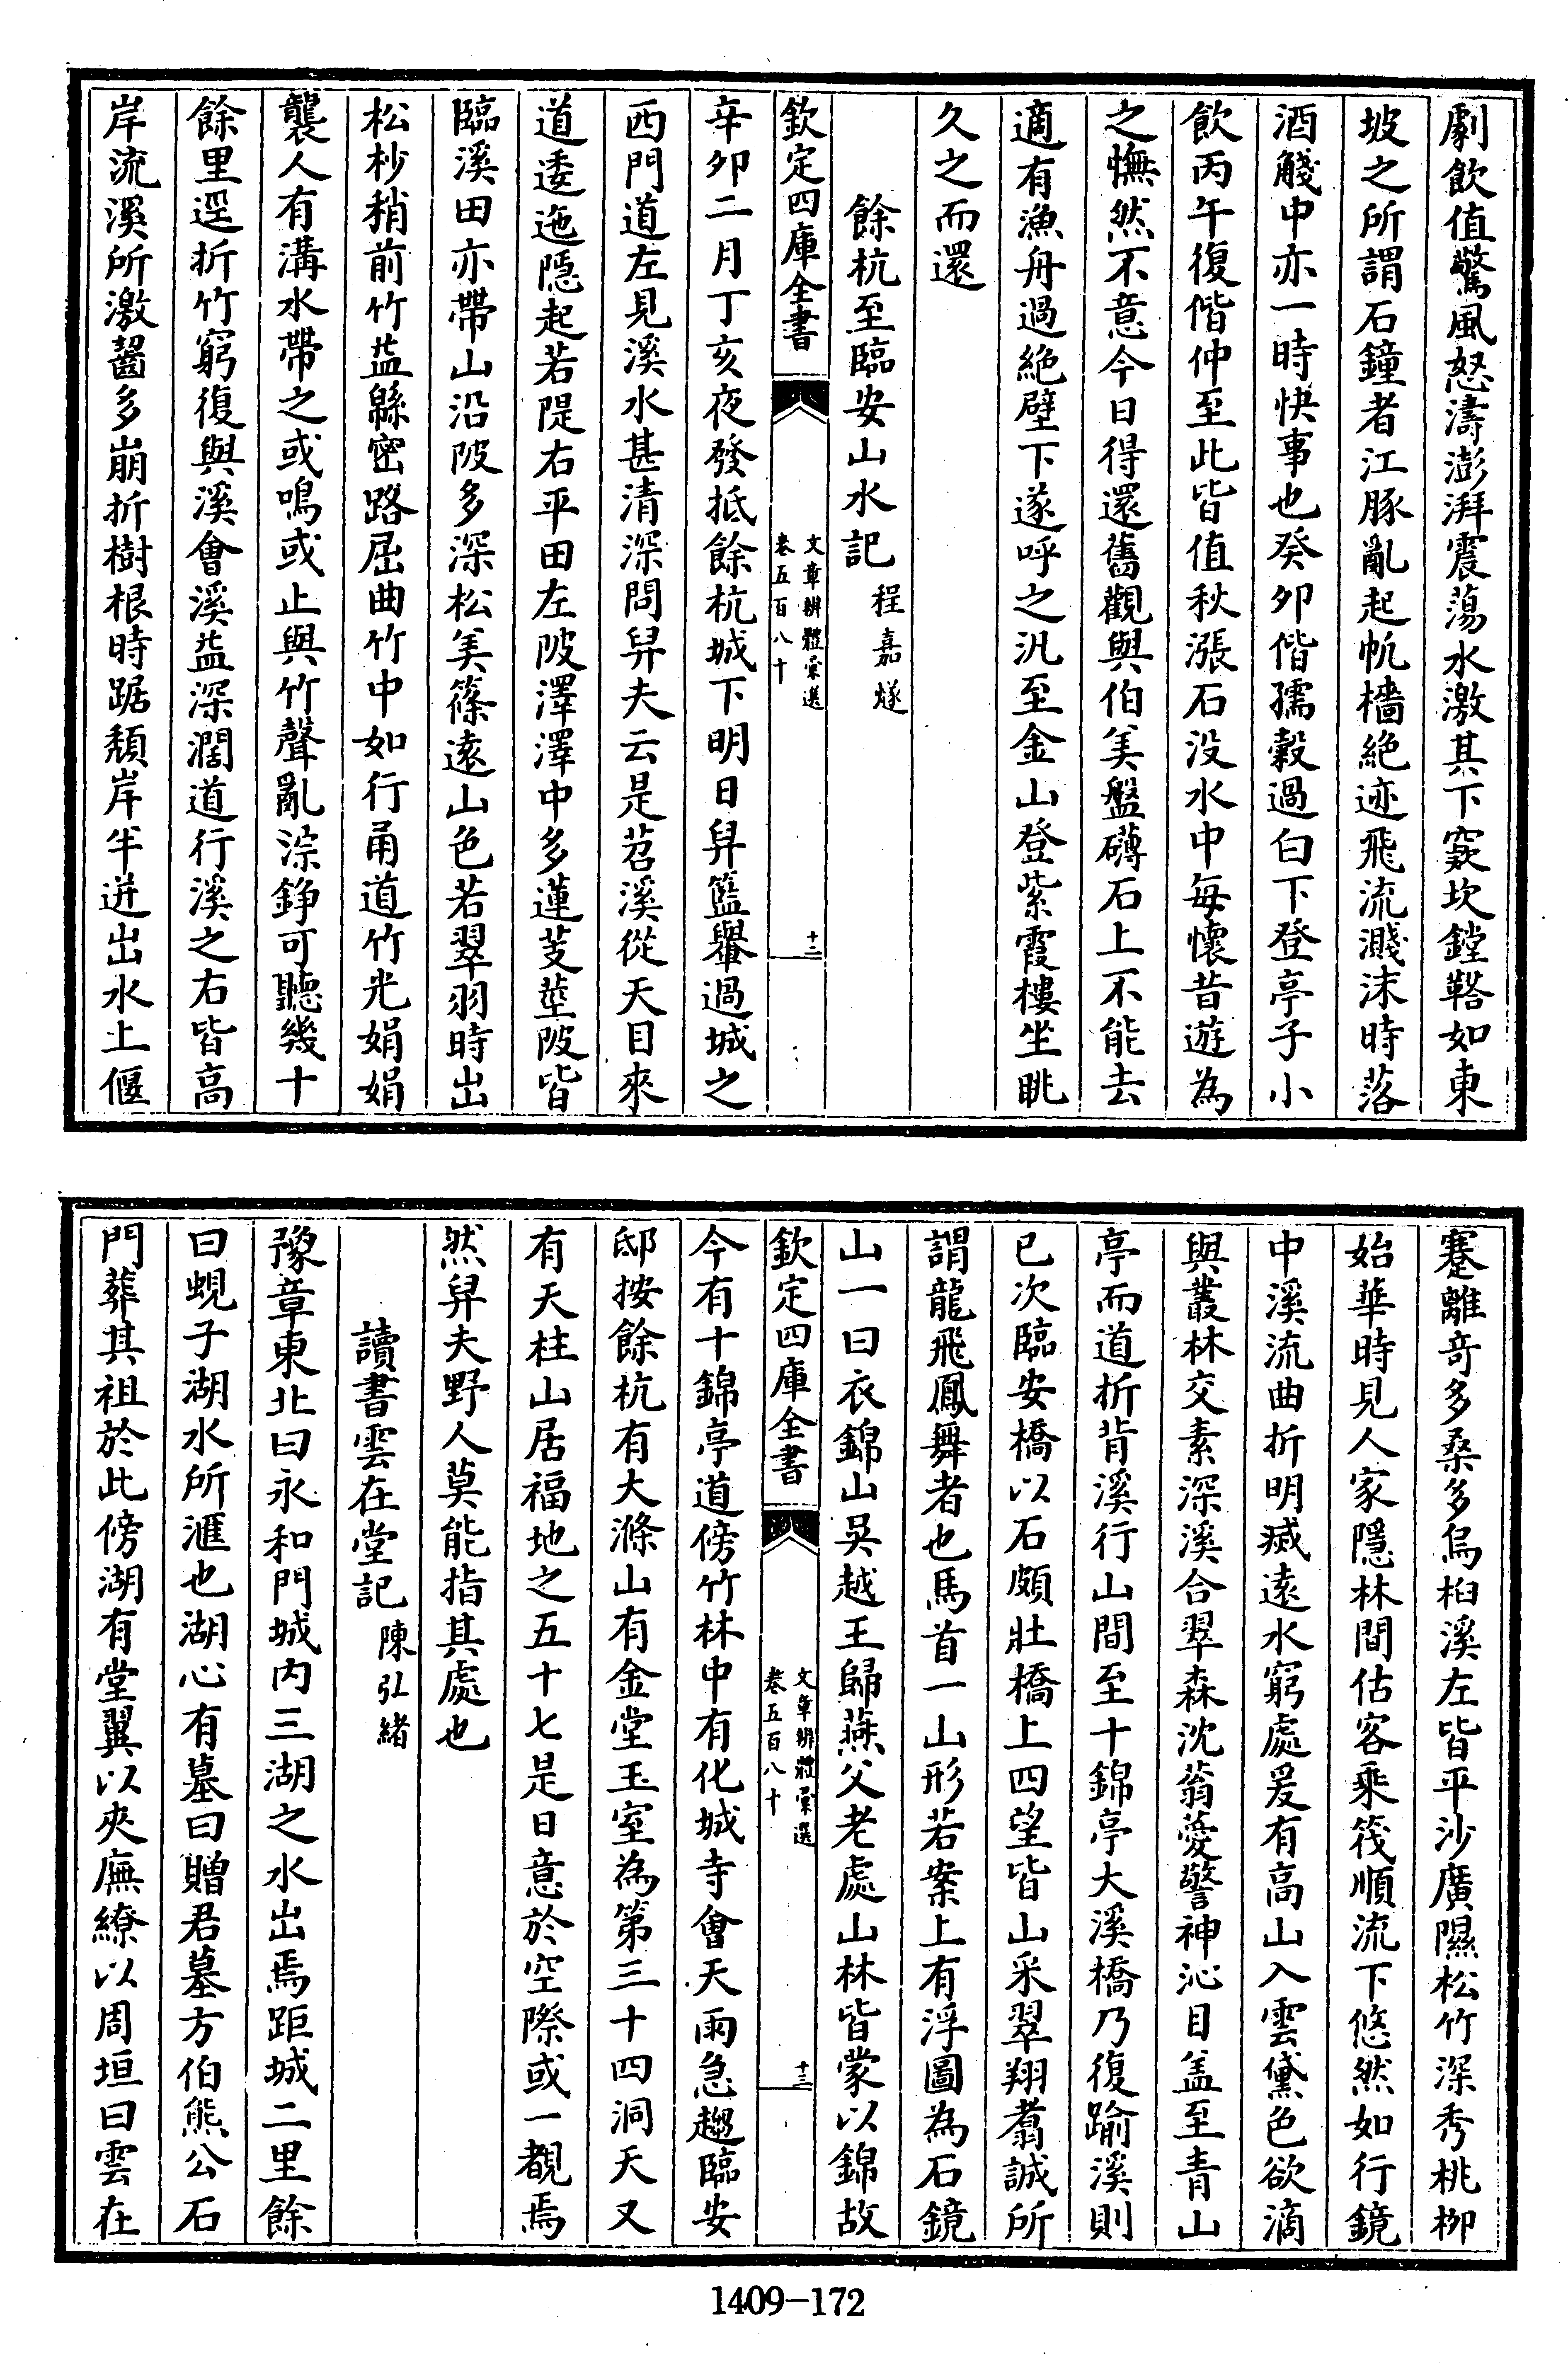 劇飲值驚風怒濤澎湃震蕩水激其下窾坎鏜鞳如東
坡之所謂石鐘者江豚亂起帆檣絶迹飛流濺沫時落
酒觴中亦一時快事也癸卯偕孺穀過白下登亭子小
飲丙午復偕仲至此皆值秋漲石没水中每懷昔遊為
之憮然不意今日得還舊觀與伯美盤礴石上不能去
適有漁舟過絶壁下遂呼之汎至金山登紫霞樓坐眺
久之而還
餘杭至臨安山水記 程嘉燧
欽定四庫全書
文章辨體彙選
卷五百八十
十二
辛卯二月丁亥夜發抵餘杭城下明日舁籃轝過城之
西門道左見溪水甚清深問舁夫云是苕溪從天目來
道逶迤隱起若隄右平田左陂澤澤中多蓮芰莖陂皆
臨溪田亦帶山沿陂多深松美篠遠山色若翠羽時出
松杪稍前竹益緜密路屈曲竹中如行甬道竹光娟娟
襲人有溝水帶之或鳴或止與竹聲亂淙錚可聽幾十
餘里逕折竹窮復與溪會溪益深濶道行溪之右皆高
岸流溪所激齧多崩折樹根時踞頽岸半迸出水上偃
蹇離奇多桑多烏桕溪左皆平沙廣隰松竹深秀桃柳
始華時見人家隱林間估客乘筏順流下悠然如行鏡
中溪流曲折明滅遠水窮處爰有高山入雲黛色欲滴
與叢林交素深溪合翠森沈蓊薆警神沁目盖至青山
亭而道折背溪行山間至十錦亭大溪橋乃復踰溪則
已次臨安橋以石頗壯橋上四望皆山采翠翔翥誠所
謂龍飛鳳舞者也馬首一山形若案上有浮圖為石鏡
山一曰衣錦山吳越王歸燕父老處山林皆蒙以錦故
欽定四庫全書
文章辨體彙選
卷五百八十
十三
今有十錦亭道傍竹林中有化城寺會天雨急趨臨安
邸按餘杭有大滌山有金堂玉室為第三十四洞天又
有天柱山居福地之五十七是日意於空際或一覩焉
然舁夫野人莫能指其處也
讀書雲在堂記 陳弘緒
豫章東北曰永和門城内三湖之水出焉距城二里餘
曰蜆子湖水所滙也湖心有墓曰贈君墓方伯熊公石
門葬其祖於此傍湖有堂翼以夾廡繚以周垣曰雲在
1409-172